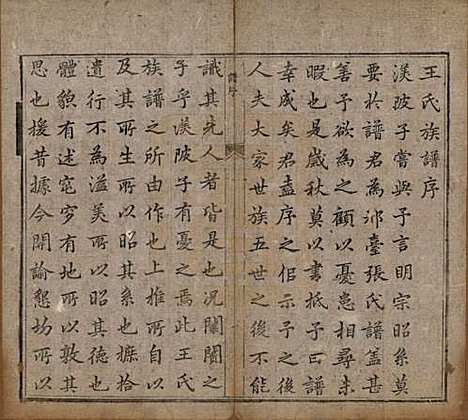 王氏族譜序
渼陂子嘗與予言明宗昭系莫
要於譜君為邢臺張氏譜蓋甚
善予欲為之顧以憂患相尋未
暇也是歲秋莫以書抵予曰譜
幸成矣君盍序之示予之後
人夫大家世族五世之後不能
譜序
識其先人者皆是也況閭閻之
子乎渼陂子有憂之焉此王氏
族譜之所由作也上推所
及其所生所以昭其系也摭拾
遺行不為溢美所以昭其德也
體貌有述窀穸有地所以敦其
思也援昔據今開諭懇切所以